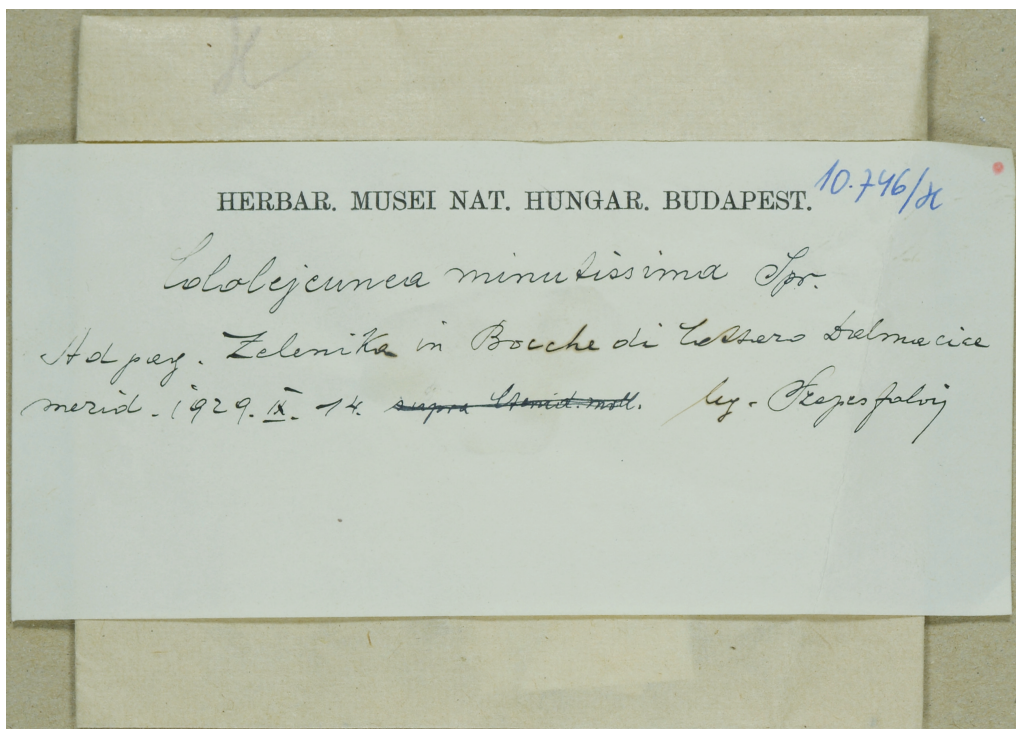 HERBAR. MUSEI NAT. HUNGAR. BUDAPEST. 10.746/H
Cololejeunea minutissima Spr.
Ad pag. Zelenika in Bocche di Cattaro Dalmaciae
merid. 1929. IX. 14. leg. Szepesfalvy